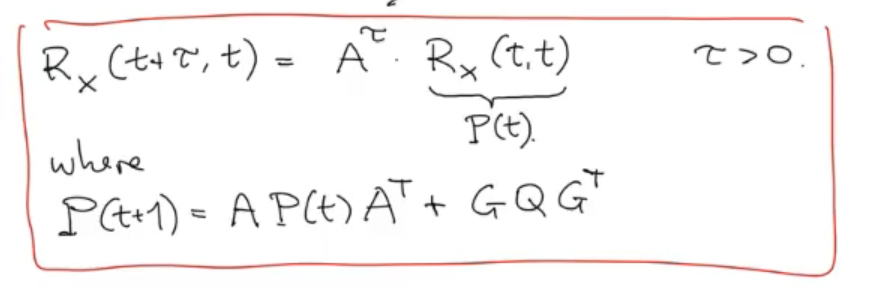 R_x(t+τ, t) = A^τ · R_x(t,t)    τ>0.
P(t).
where
P(t+1) = A P(t) A^T + G Q G^T